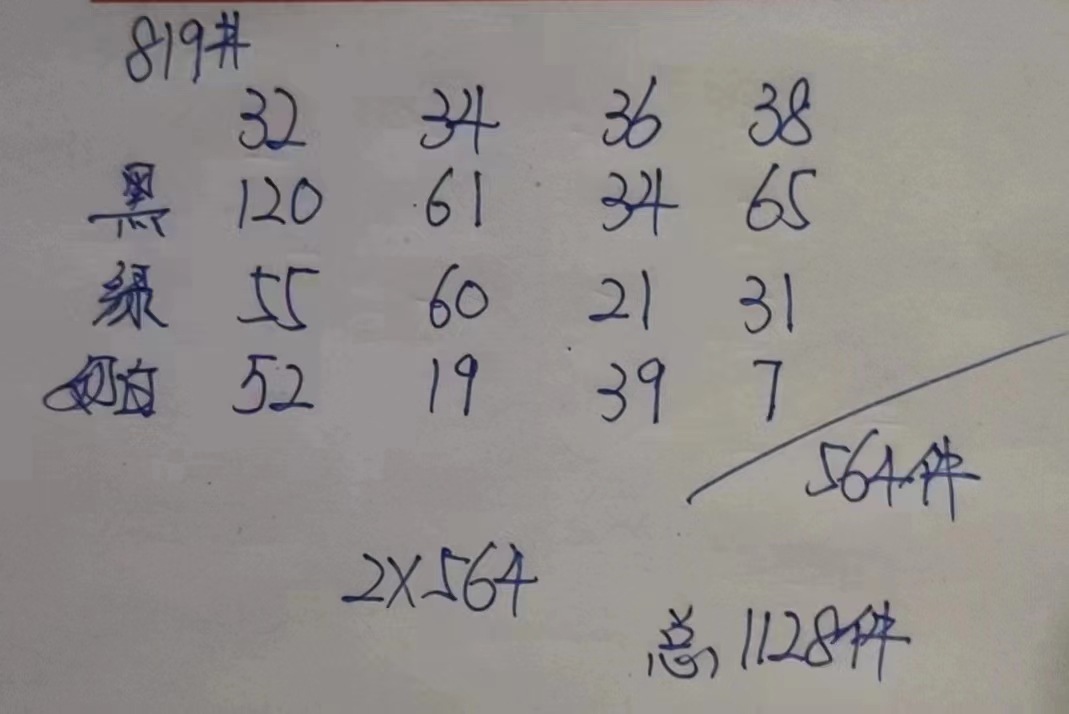 819#
32 34 36 38
黑 120 61 34 65
绿 55 60 21 31
白 52 19 39 7
564件
2X564
总 1128件